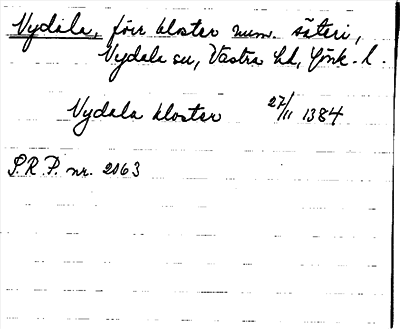 Nydala, förr kloster num. säteri,
Nydala sn, Västra hd, Jönk. l.
Nydala kloster 27/11 1384
S.R.P. nr. 2063